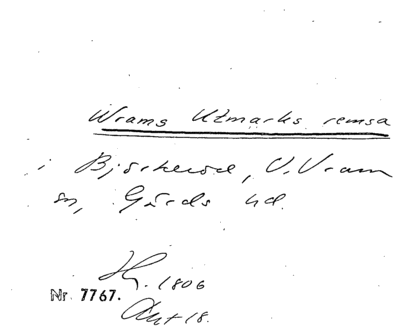 Wrams Utmarks remsa
i Björkerød, V. Vram
sn, Gärds hd.
Hg. 1806
Nr 7767.
Akt 18.